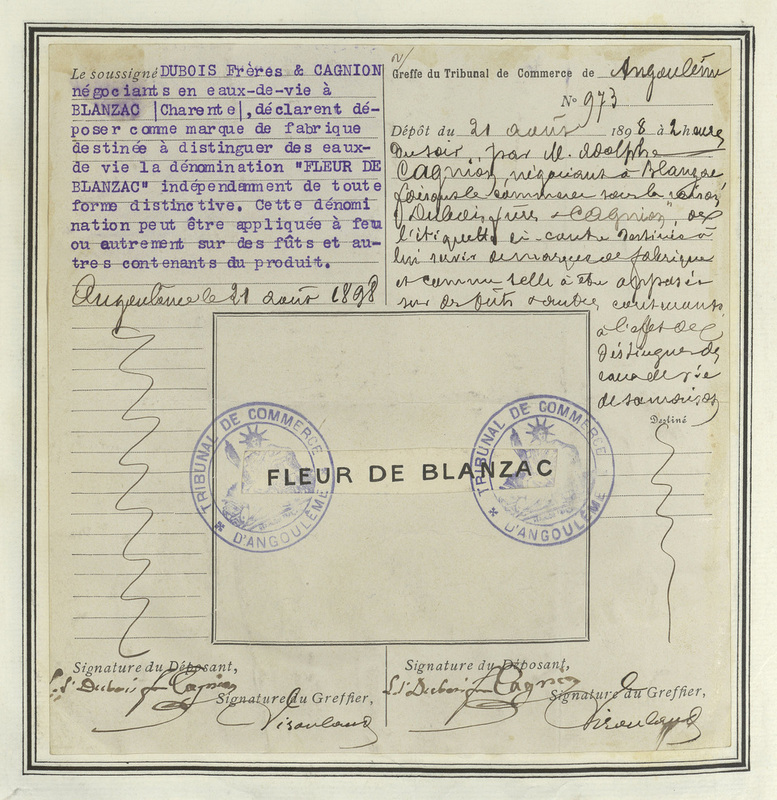 Le soussigné DUBOIS Frères & CAGNION
négociants en eaux-de-vie à
BLANZAC |Charente|,déclarent dé-
poser comme marque de fabrique
destinée à distinguer des eaux-
de vie la dénomination "FLEUR DE
BLANZAC" indépendamment de toute
forme distinctive. Cette dénomi
nation peut être appliquée à feu
ou autrement sur des fûts et au-
tres contenants du produit.
Angoulême le 21 août 1898
Greffe du Tribunal de Commerce de Angoulême
No 973
Dépôt du 21 août 1898 à 2 heures
du soir, par M. Adolphe
Cagnion, négociant à Blanzac
faisant le commerce sous la raison
"Dubois frères & Cagnion", de
l'étiquette ci-contre destinée à
lui servir de marque de fabrique
et comme telle à être apposée
sur des fûts & autres contenants
à l'effet de
distinguer des
eaux de vie
de sa maison
Destiné
TRIBUNAL DE COMMERCE
D'ANGOULÊME
FLEUR DE BLANZAC
TRIBUNAL DE COMMERCE
D'ANGOULÊME
Signature du Déposant,
Dubois frs Cagnion
Signature du Greffier,
Signature du Déposant,
Dubois frs Cagnion
Signature du Greffier,